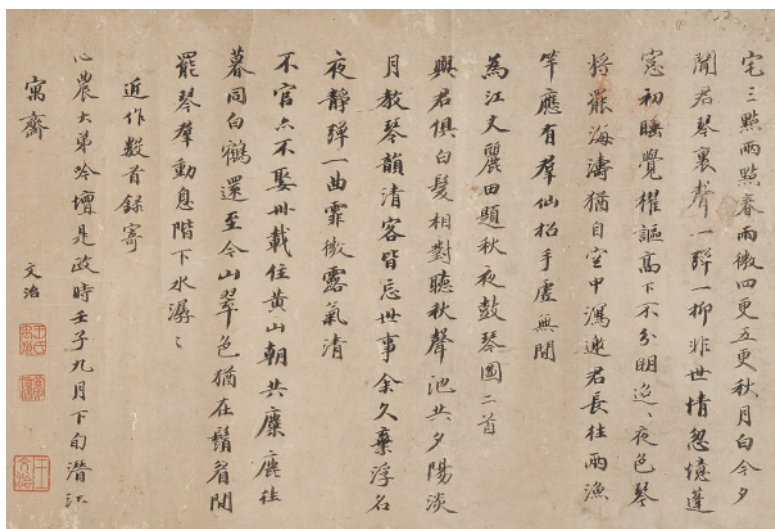 宅三點兩點春雨微四更五更秋月白今夕
聞君琴裏聲一彈一抑非世情忽憶蓬
窓初睡覺櫂謳高下不分明迢〻夜色琴
將罷海濤猶自空中瀉邀君長往兩漁
竿應有羣仙招手虛無間
為江丈麗田題秋夜鼓琴圖二首
與君俱白髮相對聽秋聲池共夕陽淡
月教琴韻清客皆忘世事余久棄浮名
夜靜彈一曲霏微露氣清
不官亦不娶卅載住黃山朝共麋鹿往
暮同白鶴還至今山翠色猶在鬚眉間
罷琴羣動息階下水潺〻
近作數首録寄
心農大弟吟壇是政時壬子九月下旬潛江
寓齋
文治
王文治